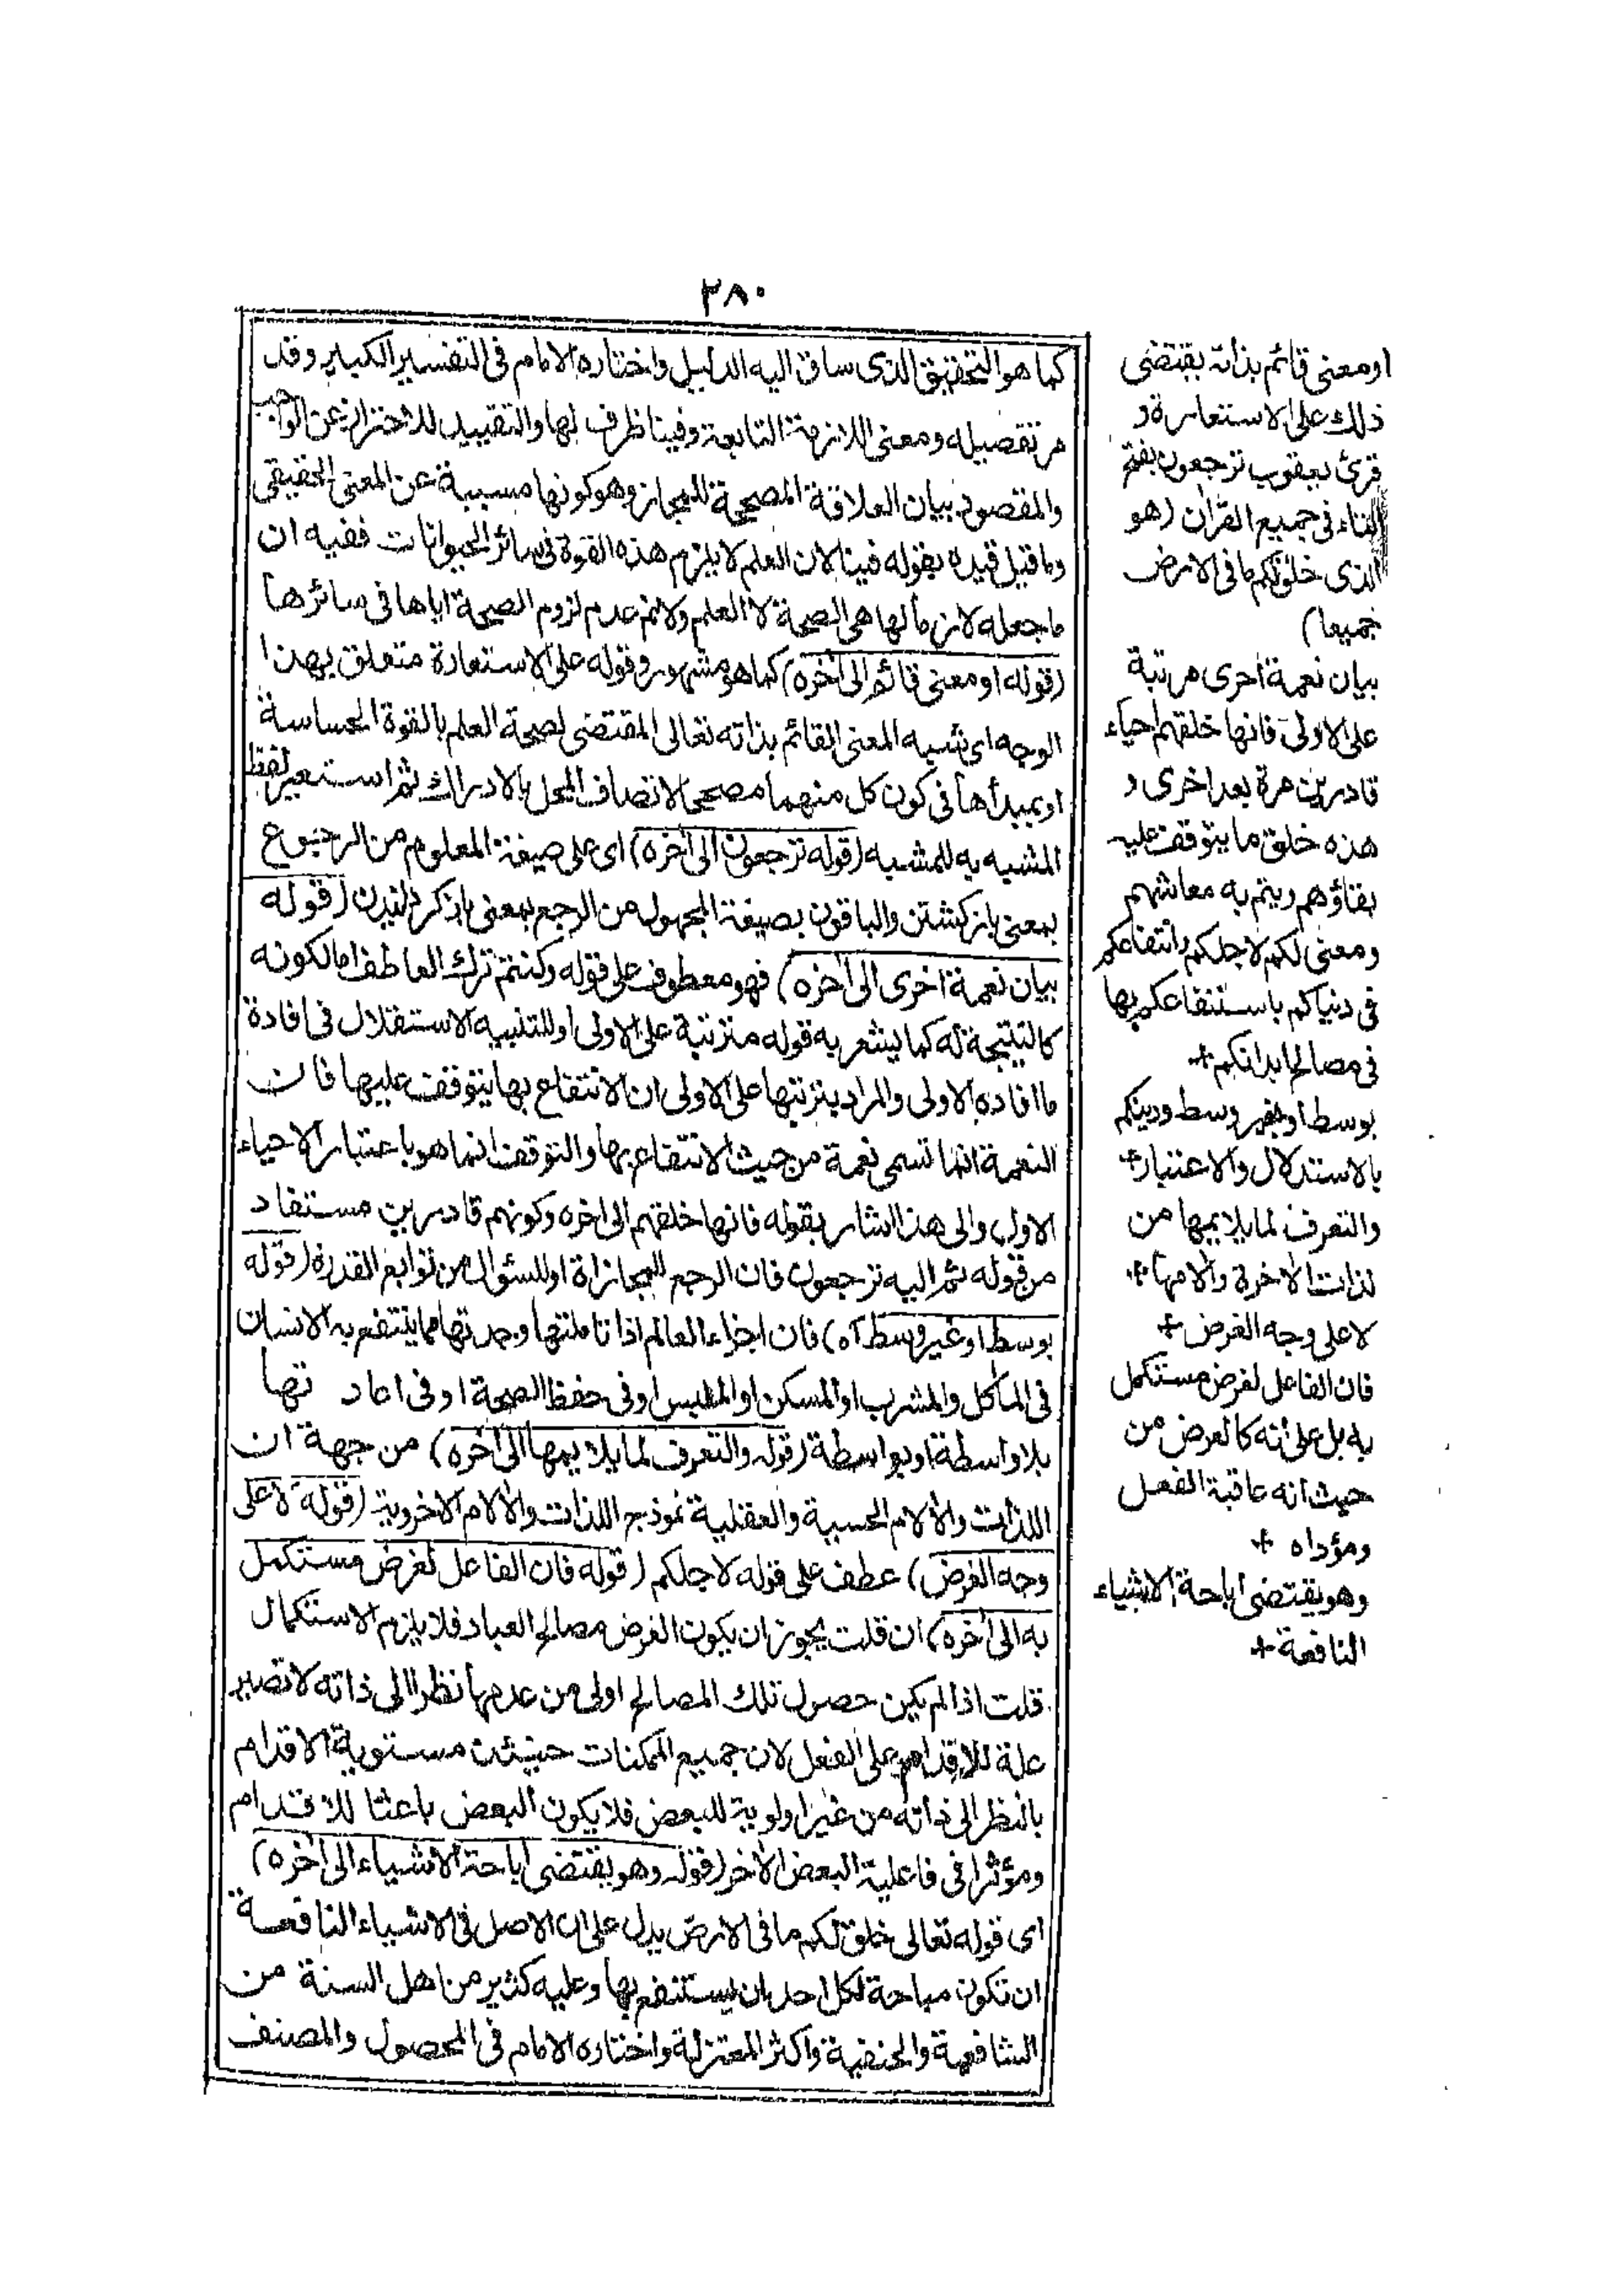 ٢٨٠
كما هو التحقيق الذى ساق اليه الدليل واختاره الامام فى التفسير الكبير وقد
مر تفصيله ومعنى اللازمة التابعة وفينا ظرف لها والتقييد للاحتراز عن الواجب
والمقصود بيان العلاقة المصححة للمجاز وهو كونها مسببة عن المعنى الحقيقى
وما قيل قيده بقوله فينا لان العلم لا يلزم هذه القوة فى سائر الحيوانات ففيه ان
ما جعله لازما لها هى الصحة لا العلم ولا نم عدم لزوم الصحة اياها فى سائرها
(قوله او معنى قائم الى اخره) كما هو مشهور وقوله على الاستعارة متعلق بهذا
الوجه اى شبيه المعنى القائم بذاته تعالى المقتضى لصحة العلم بالقوة الحساسة
او بمبدأها فى كون كل منهما مصححا لاتصاف المحل بالادراك ثم استعير لفظ
المشبه به للمشبه (قوله ترجعون الى اخره) اى على صيغة المعلوم من الرجوع
بمعنى باز كشتن والباقون بصيغة المجهول من الرجع بمعنى باز كردانيدن (قوله
بيان نعمة اخرى الى اخره) فهو معطوف على قوله وكنتم ترك العاطف اما لكونه
كالنتيجة له كما يشعر به قوله مترتبة على الاولى او للتنبيه الاستقلال فى افادة
ما افاده الاولى والمراد بترتبها على الاولى ان الانتفاع بها يتوقف عليها فان
النعمة انما تسمى نعمة من حيث الانتفاع بها والتوقف انما هو باعتبار الاحياء
الاول والى هذا اشار بقوله فانها خلقهم الى اخره وكونهم قادرين مستفاد
من قوله ثم اليه ترجعون فان الرجع للمجازاة او للسئوال من توابع القدرة (قوله
بوسط او غير وسط آه) فان اجزاء العالم اذا تاملتها وجدتها مما ينتفع به الانسان
فى الماكل والمشرب او المسكن او الملبس او فى حفظ الصحة او فى اعاد تها
بلا واسطة او بواسطة (قوله والتعرف لما يلايمها الى اخره) من جهة ان
اللذات والآلام الحسية والعقلية نموذج اللذات والآلام الاخروية (قوله لا على
وجه الغرض) عطف على قوله لاجلكم (قوله فان الفاعل لغرض مستكمل
به الى اخره) ان قلت يجوز ان يكون الغرض مصالح العباد فلا يلزم الاستكمال
قلت اذا لم يكن حصول تلك المصالح اولى من عدمها نظرا الى ذاته لا تصير
علة للاقدام على الفعل لان جميع الممكنات حينئذ مستوية الاقدام
بالنظر الى ذاته من غير اولوية للبعض فلا يكون البعض باعثا للاقدام
ومؤثرا فى فاعلية البعض الاخر (قوله وهو يقتضى اباحة الاشياء الى اخره)
اى قوله تعالى خلق لكم ما فى الارض يدل على ان الاصل فى الاشياء النافعة
ان تكون مباحة لكل احد ان يستنفع بها وعليه كثير من اهل السنة من
الشافعية والحنفية واكثر المعتزلة واختاره الامام فى المحصول والمصنف
او معنى قائم بذاته يقتضى
ذلك على الاستعارة و
قرئ يعقوب ترجعون بفتح
التاء فى جميع القران (هو
الذى خلق لكم ما فى الارض
جميعا)
بيان نعمة اخرى مرتبة
على الاولى فانها خلقهم احياء
قادرين مرة بعد اخرى و
هذه خلق ما يتوقف عليه
بقاؤهم ويتم به معاشهم
ومعنى لكم لاجلكم وانتفاعكم
فى دنياكم باستنفاعكم بها
فى مصالح ابدانكم +
بوسط او بغير وسط ودينكم
بالاستدلال والاعتبار +
والتعرف لما يلايمها من
لذات الاخرة والامها +
لا على وجه الغرض +
فان الفاعل لغرض مستكمل
به بل على انه كالغرض من
حيث انه عاقبة الفعل
ومؤداه +
وهو يقتضى اباحة الاشياء
النافعة +